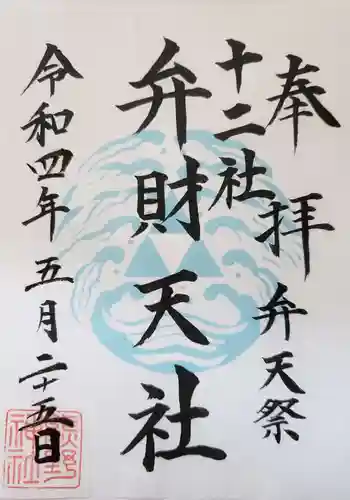 奉拝
弁天祭
十二社
弁財天社
令和四年五月二十五日
熊野神社